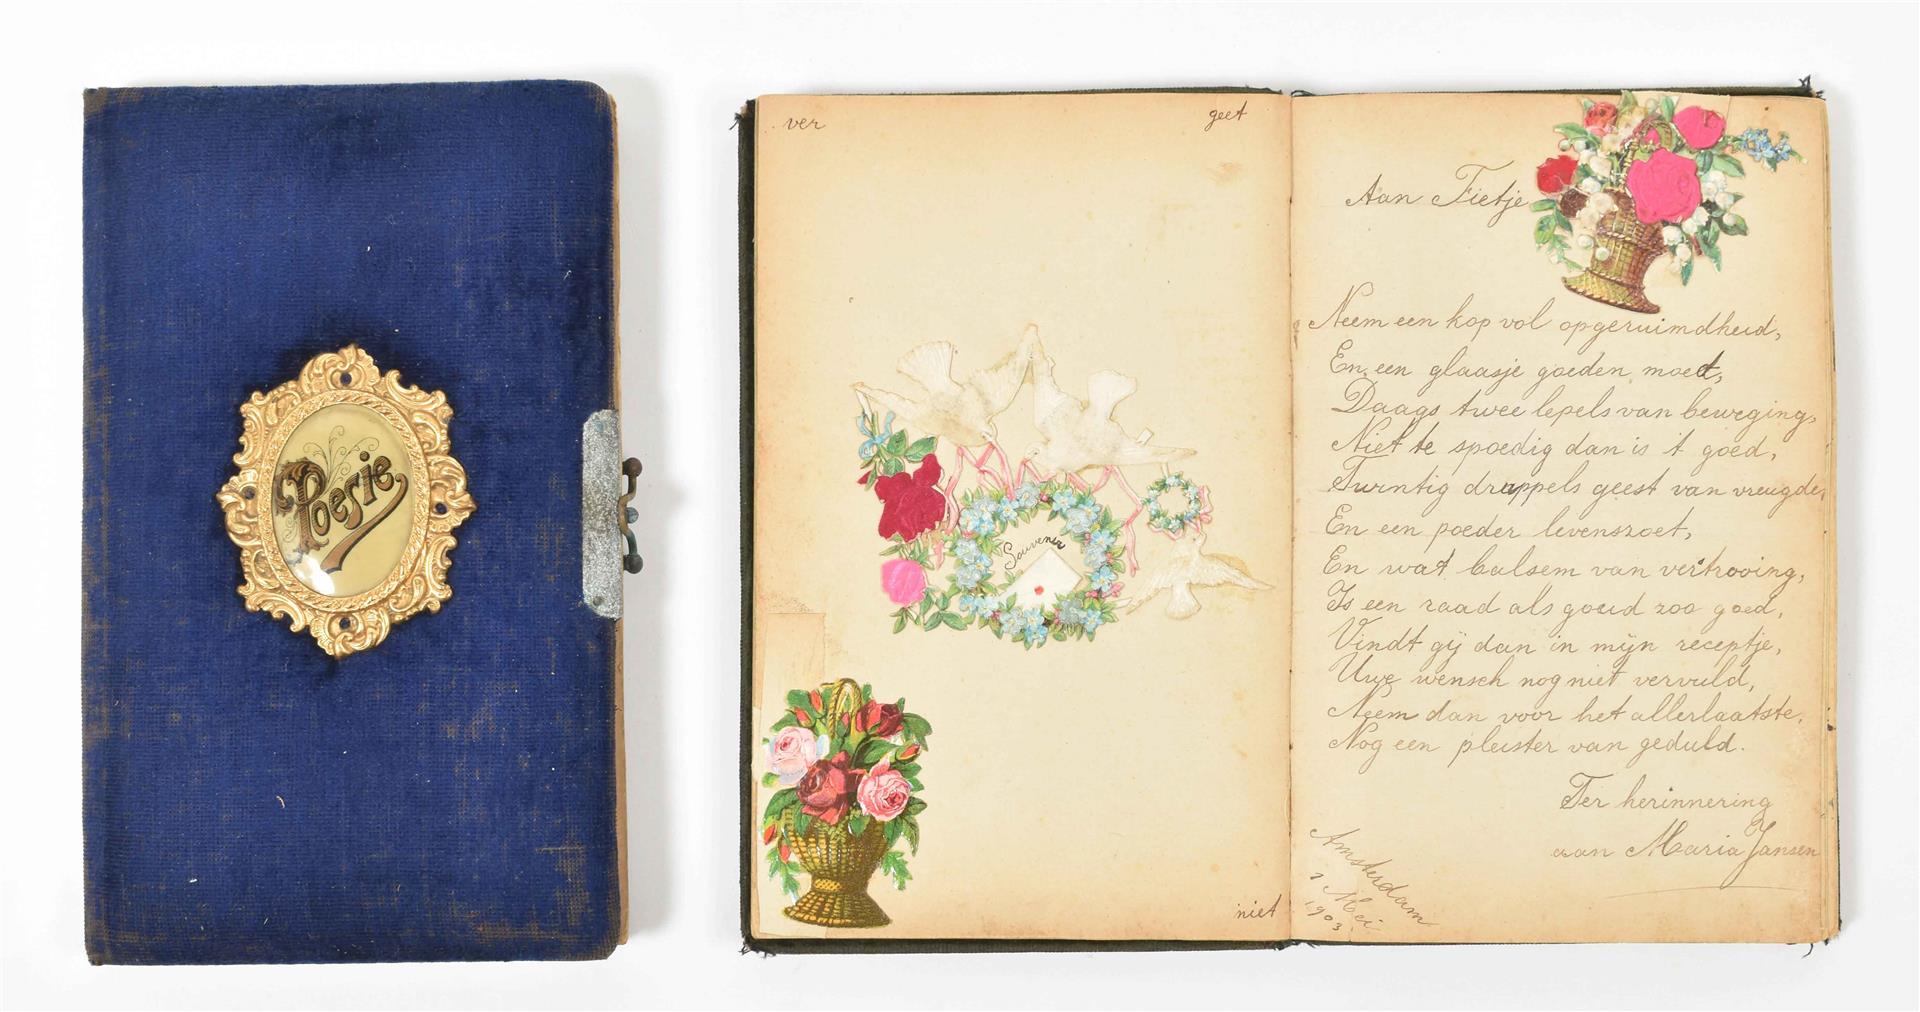 Poesie
ver
geet
Souvenir
niet
Aan Fietje
Neem een kop vol opgeruimdheid,
En een glaasje goeden moed,
Daags twee lepels van beweging,
Niet te spoedig dan is 't goed,
Twintig druppels geest van vreugde,
En een poeder levenszoet,
En wat balsem van vertrooing,
Is een raad als goud zoo goed,
Vindt gij dan in mijn receptje,
Uwe wensch nog niet vervuld,
Neem dan voor het allerlaatste,
Nog een pleister van geduld.
Ter herinnering
aan Maria Jansen
Amsterdam
1 Mei
1903